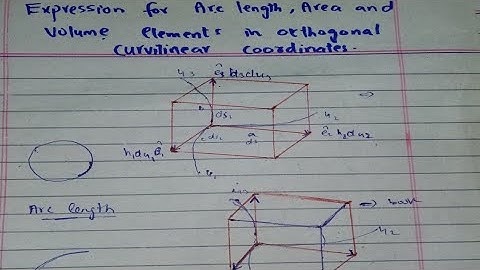 Expression for Arc length, Area and
Volume elements in orthogonal
curvilinear coordinates.
u3
ê3 h3du3
⇒
ds1
u2
ê2 h2du2
h1du1ê1
u1
Arc length
⇒
u2